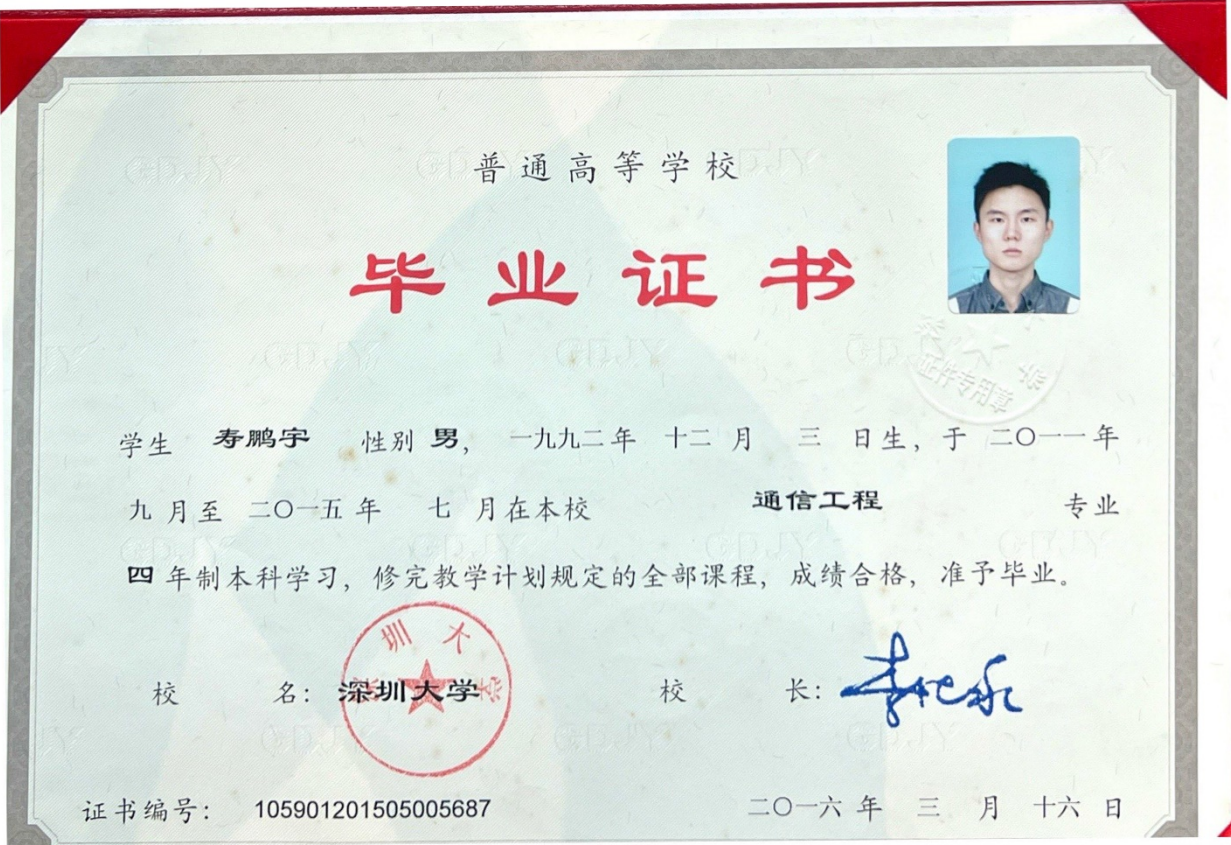 普通高等学校
毕业证书
学生 寿鹏宇 性别 男， 一九九二年 十二 月 三 日生，于 二〇一一年
九 月至 二〇一五年 七 月在本校 通信工程 专业
四 年制本科学习，修完教学计划规定的全部课程，成绩合格，准予毕业。
校 名：深圳大学 校 长：
证书编号： 105901201505005687 二〇一六 年 三 月 十六 日
证件专用章
GDJY